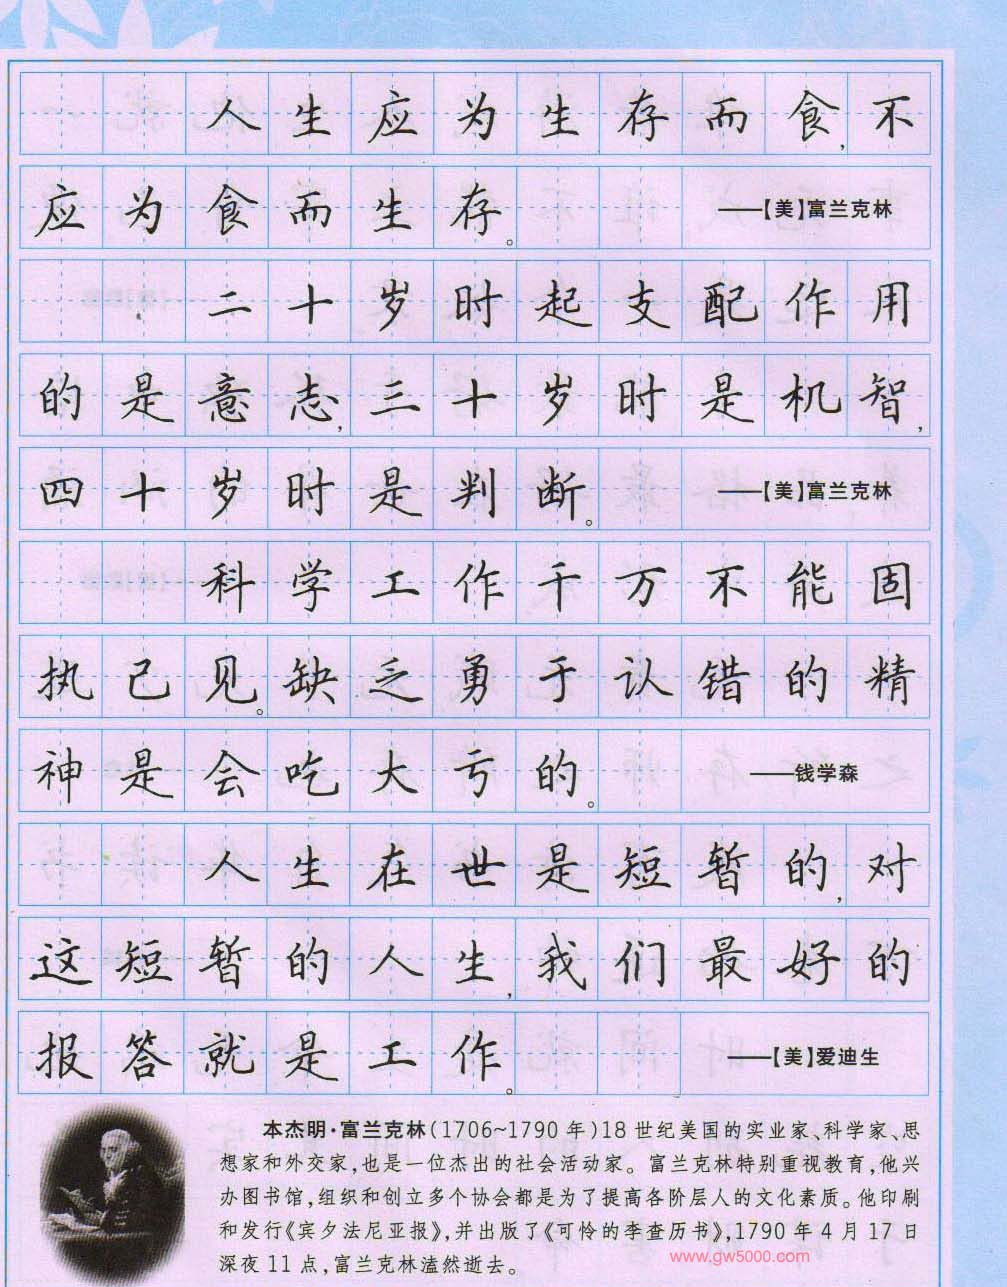 人生应为生存而食,不
应为食而生存。 ——【美】富兰克林
二十岁时起支配作用
的是意志,三十岁时是机智,
四十岁时是判断。 ——【美】富兰克林
科学工作千万不能固
执己见。缺乏勇于认错的精
神是会吃大亏的。 ——钱学森
人生在世是短暂的,对
这短暂的人生,我们最好的
报答就是工作。 ——【美】爱迪生
本杰明·富兰克林(1706~1790年)18世纪美国的实业家、科学家、思
想家和外交家,也是一位杰出的社会活动家。富兰克林特别重视教育,他兴
办图书馆,组织和创立多个协会都是为了提高各阶层人的文化素质。他印刷
和发行《宾夕法尼亚报》,并出版了《可怜的李查历书》,1790年4月17日
深夜11点,富兰克林溘然逝去。
www.gw5000.com